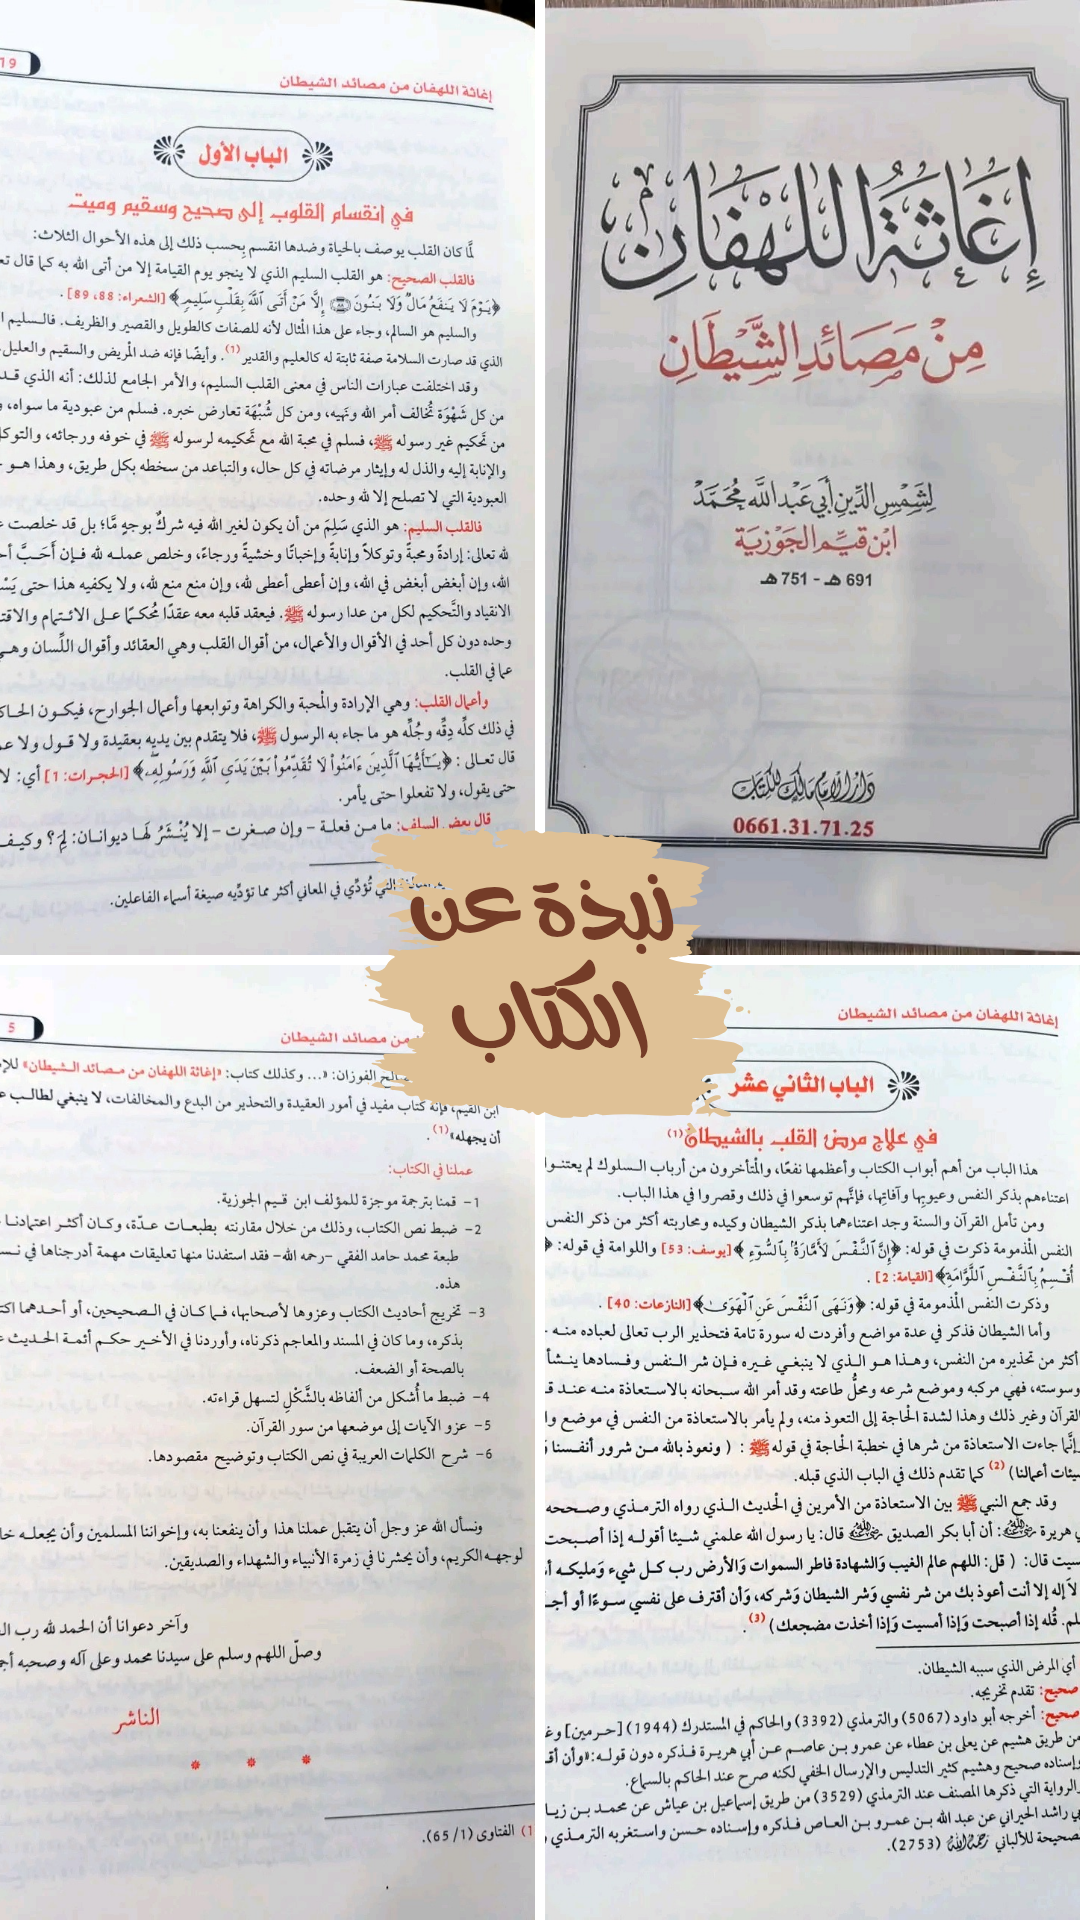 إغاثة اللهفان من مصائد الشيطان
19
الباب الأول
في انقسام القلوب إلى صحيح وسقيم وميت
لمَّا كان القلب يوصف بالحياة وضدها انقسم بِحسب ذلك إلى هذه الأحوال الثلاث:
فالقلب الصحيح: هو القلب السليم الذي لا ينجو يوم القيامة إلا من أتى الله به كما قال
﴿يَوْمَ لَا يَنفَعُ مَالٌ وَلَا بَنُونَ ۝ إِلَّا مَنْ أَتَى ٱللَّهَ بِقَلْبٍ سَلِيمٍ﴾ [الشعراء: 88، 89].
والسليم هو السالم، وجاء على هذا المثال لأنه للصفات كالطويل والقصير والظريف. فالسليم
الذي قد صارت السلامة صفة ثابتة له كالعليم والقدير (1). وأيضًا فإنه ضد المريض والسقيم والعليل
وقد اختلفت عبارات الناس في معنى القلب السليم، والأمر الجامع لذلك: أنه الذي
من كل شَهْوَة تُخالف أمر الله ونَهيه، ومن كل شُبْهَة تعارض خبره. فسلم من عبودية ما سواه،
من تَحكيم غير رسوله ﷺ، فسلم في محبة الله مع تَحكيمه لرسوله ﷺ في خوفه ورجائه، والتوكل
والإنابة إليه والذل له وإيثار مرضاته في كل حال، والتباعد من سخطه بكل طريق، وهذا هو
العبودية التي لا تصلح إلا لله وحده.
فالقلب السليم: هو الذي سَلِمَ من أن يكون لغير الله فيه شركٌ بوجهٍ مَّا؛ بل قد خلصت
لله تعالى: إرادةً ومحبةً وتوكلاً وإنابةً وإخباتًا وخشيةً ورجاءً، وخلص عمله لله فإن أَحَبَّ
الله، وإن أبغض أبغض في الله، وإن أعطى أعطى لله، وإن منع منع لله، ولا يكفيه هذا حتى
الانقياد والتَّحكيم لكل من عدا رسوله ﷺ. فيعقد قلبه معه عقدًا مُحكمًا على الائتمام
وحده دون كل أحد في الأقوال والأعمال، من أقوال القلب وهي العقائد وأقوال اللِّسان
عما في القلب.
وأعمال القلب: وهي الإرادة والمحبة والكراهة وتوابعها وأعمال الجوارح، فيكون
في ذلك كلِّه دِقِّه وجُلِّه هو ما جاء به الرسول ﷺ، فلا يتقدم بين يديه بعقيدة ولا قول ولا
قال تعالى: ﴿يَٰٓأَيُّهَا ٱلَّذِينَ ءَامَنُوا۟ لَا تُقَدِّمُوا۟ بَيْنَ يَدَىِ ٱللَّهِ وَرَسُولِهِۦ﴾ [الحجرات: 1] أي: لا
حتى يقول، ولا تفعلوا حتى يأمر.
قال بعض السلف: ما من فعلة – وإن صغرت – إلا يُنْشَرُ لَها ديوانان: لِمَ؟ وكيف
التي تُؤدِّي في المعاني أكثر مما تؤدِّيه صيغة أسماء الفاعلين.
إِغَاثَةُ اللَّهْفَانِ
مِنْ مَصَائِدِ الشَّيْطَانِ
لِشَمْسِ الدِّينِ أَبِي عَبْدِ اللَّه مُحَمَّد
ابْنِ قَيِّمِ الجَوْزِيَّة
691 هـ - 751 هـ
دَارُ الإِمَامِ مَالِك لِلْكِتَاب
0661.31.71.25
نبذة عن
الكتاب
من مصائد الشيطان
5
الح الفوزان: «... وكذلك كتاب: «إغاثة اللهفان من مصائد الشيطان»
ابن القيم، فإنه كتاب مفيد في أمور العقيدة والتحذير من البدع والمخالفات، لا ينبغي لطالب
أن يجهله» (1).
عملنا في الكتاب:
1- قمنا بترجمة موجزة للمؤلف ابن قيم الجوزية.
2- ضبط نص الكتاب، وذلك من خلال مقارنته بطبعات عدّة، وكان أكثر اعتمادنا
طبعة محمد حامد الفقي -رحمه الله- فقد استفدنا منها تعليقات مهمة أدرجناها في
هذه.
3- تخريج أحاديث الكتاب وعزوها لأصحابها، فما كان في الصحيحين، أو أحدهما
بذكره، وما كان في المسند والمعاجم ذكرناه، وأوردنا في الأخير حكم أئمة الحديث
بالصحة أو الضعف.
4- ضبط ما أُشكل من ألفاظه بالشَّكْلِ لتسهل قراءته.
5- عزو الآيات إلى موضعها من سور القرآن.
6- شرح الكلمات العربية في نص الكتاب وتوضيح مقصودها.
ونسأل الله عز وجل أن يتقبل عملنا هذا وأن ينفعنا به، وإخواننا المسلمين وأن يجعله
لوجهه الكريم، وأن يحشرنا في زمرة الأنبياء والشهداء والصديقين.
وآخر دعوانا أن الحمد لله رب
وصلّ اللهم وسلم على سيدنا محمد وعلى آله وصحبه
الناشر
1) الفتاوى (1/ 65).
إغاثة اللهفان من مصائد الشيطان
الباب الثاني عشر
في علاج مرض القلب بالشيطان (1)
هذا الباب من أهم أبواب الكتاب وأعظمها نفعًا، والمتأخرون من أرباب السلوك لم يعتنوا
اعتناءهم بذكر النفس وعيوبِها وآفاتِها، فإنَّهم توسعوا في ذلك وقصروا في هذا الباب.
ومن تأمل القرآن والسنة وجد اعتناءهما بذكر الشيطان وكيده ومحاربته أكثر من ذكر النفس
النفس المذمومة ذكرت في قوله: ﴿إِنَّ ٱلنَّفْسَ لَأَمَّارَةٌۢ بِٱلسُّوٓءِ﴾ [يوسف: 53] واللوامة في قوله: ﴿
أُقْسِمُ بِٱلنَّفْسِ ٱللَّوَّامَةِ﴾ [القيامة: 2].
وذكرت النفس المذمومة في قوله: ﴿وَنَهَى ٱلنَّفْسَ عَنِ ٱلْهَوَىٰ﴾ [النازعات: 40].
وأما الشيطان فذكر في عدة مواضع وأفردت له سورة تامة فتحذير الرب تعالى لعباده منه
أكثر من تحذيره من النفس، وهذا هو الذي لا ينبغي غيره فإن شر النفس وفسادها ينشأ
وسوسته، فهي مركبه وموضع شرعه ومحلُّ طاعته وقد أمر الله سبحانه بالاستعاذة منه عند
القرآن وغير ذلك وهذا لشدة الحاجة إلى التعوذ منه، ولم يأمر بالاستعاذة من النفس في موضع
وإنَّما جاءت الاستعاذة من شرها في خطبة الحاجة في قوله ﷺ: ( ونعوذ بالله من شرور أنفسنا
سيئات أعمالنا) (2) كما تقدم ذلك في الباب الذي قبله.
وقد جمع النبي ﷺ بين الاستعاذة من الأمرين في الحديث الذي رواه الترمذي وصححه
هريرة رضي الله عنه: أن أبا بكر الصديق رضي الله عنه قال: يا رسول الله علمني شيئا أقوله إذا أصبحت
قال: ( قل: اللهم عالم الغيب وَالشهادة فاطر السموات وَالأرض رب كل شيء وَمليكه
لا إله إلا أنت أعوذ بك من شر نفسي وَشر الشيطان وَشركه، وَأن أقترف على نفسي سوءًا أو
قُله إذا أصبحت وَإذا أمسيت وَإذا أخذت مضجعك) (3).
أي المرض الذي سببه الشيطان.
صحيح: تقدم تخريجه.
صحيح: أخرجه أبو داود (5067) والترمذي (3392) والحاكم في المستدرك (1944) [حرمين]
من طريق هشيم عن يعلى بن عطاء عن عمرو بن عاصم عن أبي هريرة فذكره دون قوله: «وأن
وإسناده صحيح وهشيم كثير التدليس والإرسال الخفي لكنه صرح عند الحاكم بالسماع.
والرواية التي ذكرها المصنف عند الترمذي (3529) من طريق إسماعيل بن عياش عن محمد بن
بي راشد الحيراني عن عبد الله بن عمرو بن العاص فذكره وإسناده حسن واستغربه الترمذي
صحيحة للألباني رحمه الله (2753).